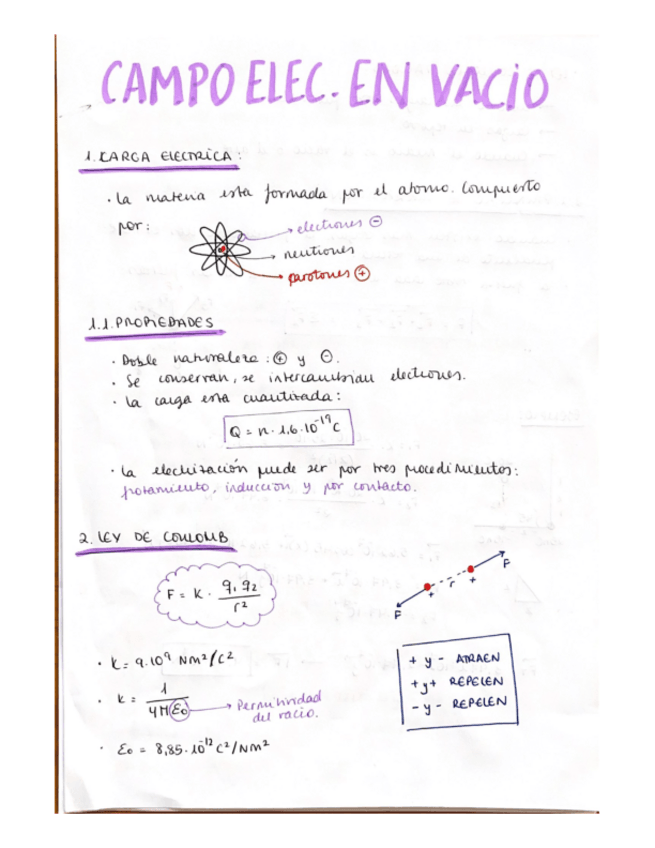 CAMPO ELEC. EN VACIO
1. CARGA ELECTRICA:
· La materia está formada por el atomo. Compuesto
por:
electrones ⊖
neutrones
protones ⊕
1.1. PROPIEDADES
· Doble naturaleza: ⊕ y ⊖.
· Se conservan, se intercambian electrones.
· La carga está cuantizada:
Q = n · 1,6 · 10⁻¹⁹ C
· La electrización puede ser por tres procedimientos:
frotamiento, inducción y por contacto.
2. LEY DE COULOMB
F = K · q₁ q₂ / r²
F
r
+ +
F
· K = 9·10⁹ Nm²/C²
· K = 1 / 4Πε₀
Permitividad
del vacio.
· ε₀ = 8,85·10⁻¹² C²/Nm²
+ y - ATRAEN
+ y + REPELEN
- y - REPELEN